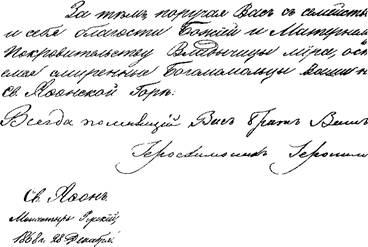 За тѣмъ, поручая Васъ съ семейств
и себя благости Божіей и Матернем
Покровительству Владычицы міра, ост
емся смиренные Богомольцы Ваши н
Св. Аѳонской Горѣ.
Всегда помнящій Васъ братъ Вашъ
Іеросхимонахъ Іерони
Св. Аѳонъ.
Монастырь Русскій,
1868 г. 28 Декабря